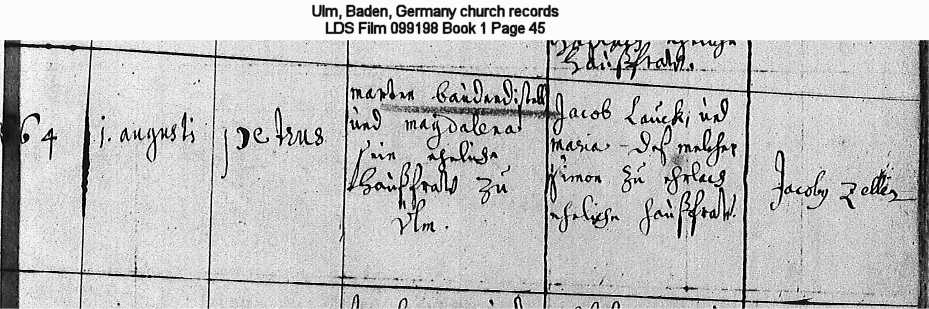 Ulm, Baden, Germany church records
LDS Film 099198 Book 1 Page 45
haußfraw.
64
1. augusti
Petrus
marten baudendistell
und magdalena
sein eheliche
haußfraw zu
Ulm.
Jacob Lauck, und
maria deß melcher
Simon zu ehrlach
eheliche haußfraw.
Jacoby